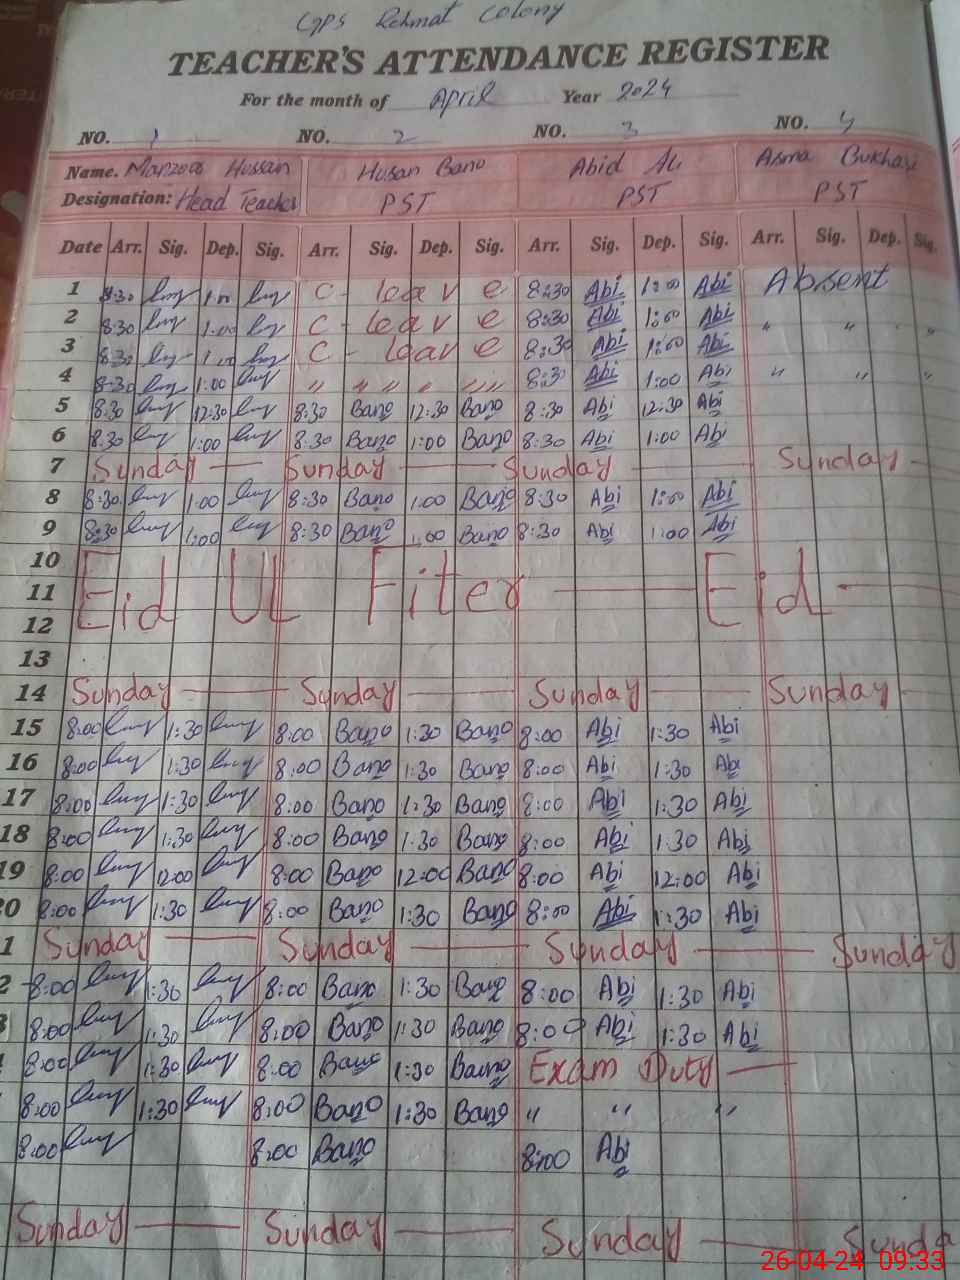 GPS Rehmat Colony
TEACHER'S ATTENDANCE REGISTER
For the month of April Year 2024
NO. 1 NO. 2 NO. 3 NO. 4
Name. Manzoor Hussain Husan Bano Abid Ali Asma Bukhari
Designation: Head Teacher PST PST PST
Date Arr. Sig. Dep. Sig. Arr. Sig. Dep. Sig. Arr. Sig. Dep. Sig. Arr. Sig. Dep. Sig.
1 8:30 1:00 C - leave 8:30 Abi 1:00 Abi Absent
2 8:30 1:00 C - leave 8:30 Abi 1:00 Abi " " "
3 8:30 1:00 C - leave 8:30 Abi 1:00 Abi
4 8:30 1:00 " " " " " 8:30 Abi 1:00 Abi " " "
5 8:30 12:30 8:30 Bano 12:30 Bano 8:30 Abi 12:30 Abi
6 8:30 1:00 8:30 Bano 1:00 Bano 8:30 Abi 1:00 Abi
7 Sunday — Sunday — Sunday — Sunday —
8 8:30 1:00 8:30 Bano 1:00 Bano 8:30 Abi 1:00 Abi
9 8:30 1:00 8:30 Bano 1:00 Bano 8:30 Abi 1:00 Abi
10
11 Eid UL Fiter — Eid —
12
13
14 Sunday — Sunday — Sunday — Sunday
15 8:00 1:30 8:00 Bano 1:30 Bano 8:00 Abi 1:30 Abi
16 8:00 1:30 8:00 Bano 1:30 Bano 8:00 Abi 1:30 Abi
17 8:00 1:30 8:00 Bano 1:30 Bano 8:00 Abi 1:30 Abi
18 8:00 1:30 8:00 Bano 1:30 Bano 8:00 Abi 1:30 Abi
19 8:00 12:00 8:00 Bano 12:00 Bano 8:00 Abi 12:00 Abi
20 8:00 1:30 8:00 Bano 1:30 Bano 8:00 Abi 1:30 Abi
1 Sunday — Sunday — Sunday — Sunday
2 8:00 1:30 8:00 Bano 1:30 Bano 8:00 Abi 1:30 Abi
3 8:00 1:30 8:00 Bano 1:30 Bano 8:00 Abi 1:30 Abi
8:00 1:30 8:00 Bano 1:30 Bano Exam Duty —
8:00 1:30 8:00 Bano 1:30 Bano " " "
8:00 8:00 Bano 8:00 Abi
Sunday — Sunday — Sunday — Sunda
26-04-24 09:33